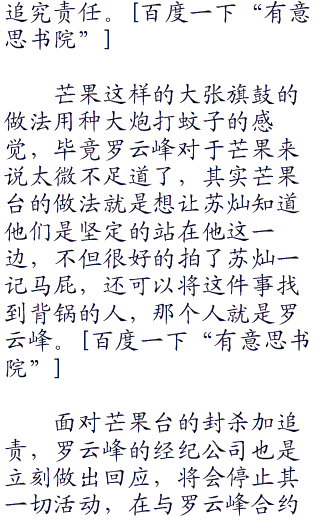 追究责任。[百度一下“有意
思书院”]
芒果这样的大张旗鼓的
做法用种大炮打蚊子的感
觉，毕竟罗云峰对于芒果来
说太微不足道了，其实芒果
台的做法就是想让苏灿知道
他们是坚定的站在他这一
边，不但很好的拍了苏灿一
记马屁，还可以将这件事找
到背锅的人，那个人就是罗
云峰。[百度一下“有意思书
院”]
面对芒果台的封杀加追
责，罗云峰的经纪公司也是
立刻做出回应，将会停止其
一切活动，在与罗云峰合约